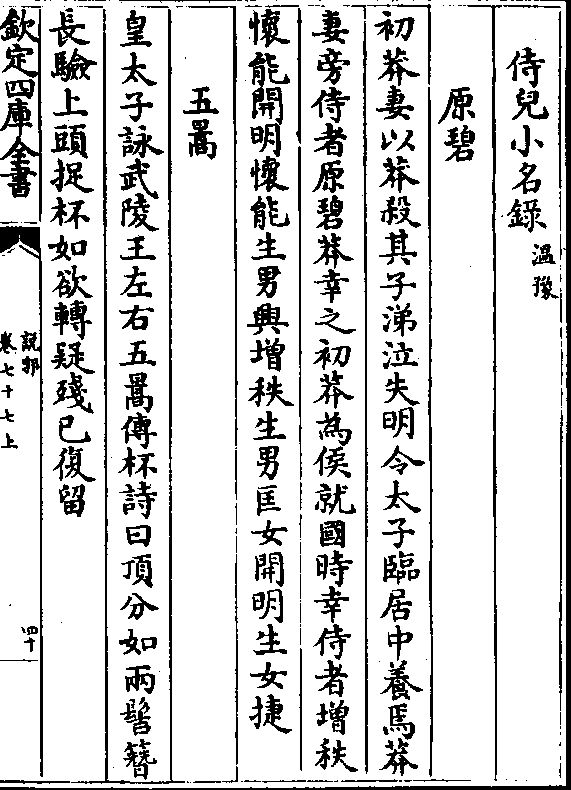 侍兒小名錄 溫豫
原碧
初莽妻以莽殺其子涕泣失明令太子臨居中養焉莽
妻旁侍者原碧莽幸之初莽為侯就國時幸侍者增秩
懷能開明懷能生男興增秩生男匡女開明生女捷
五暠
皇太子詠武陵王左右五暠傳杯詩曰頂分如兩髻簪
長驗上頭捉杯如欲轉疑殘已復留
欽定四庫全書
說郛
卷七十七上
四十